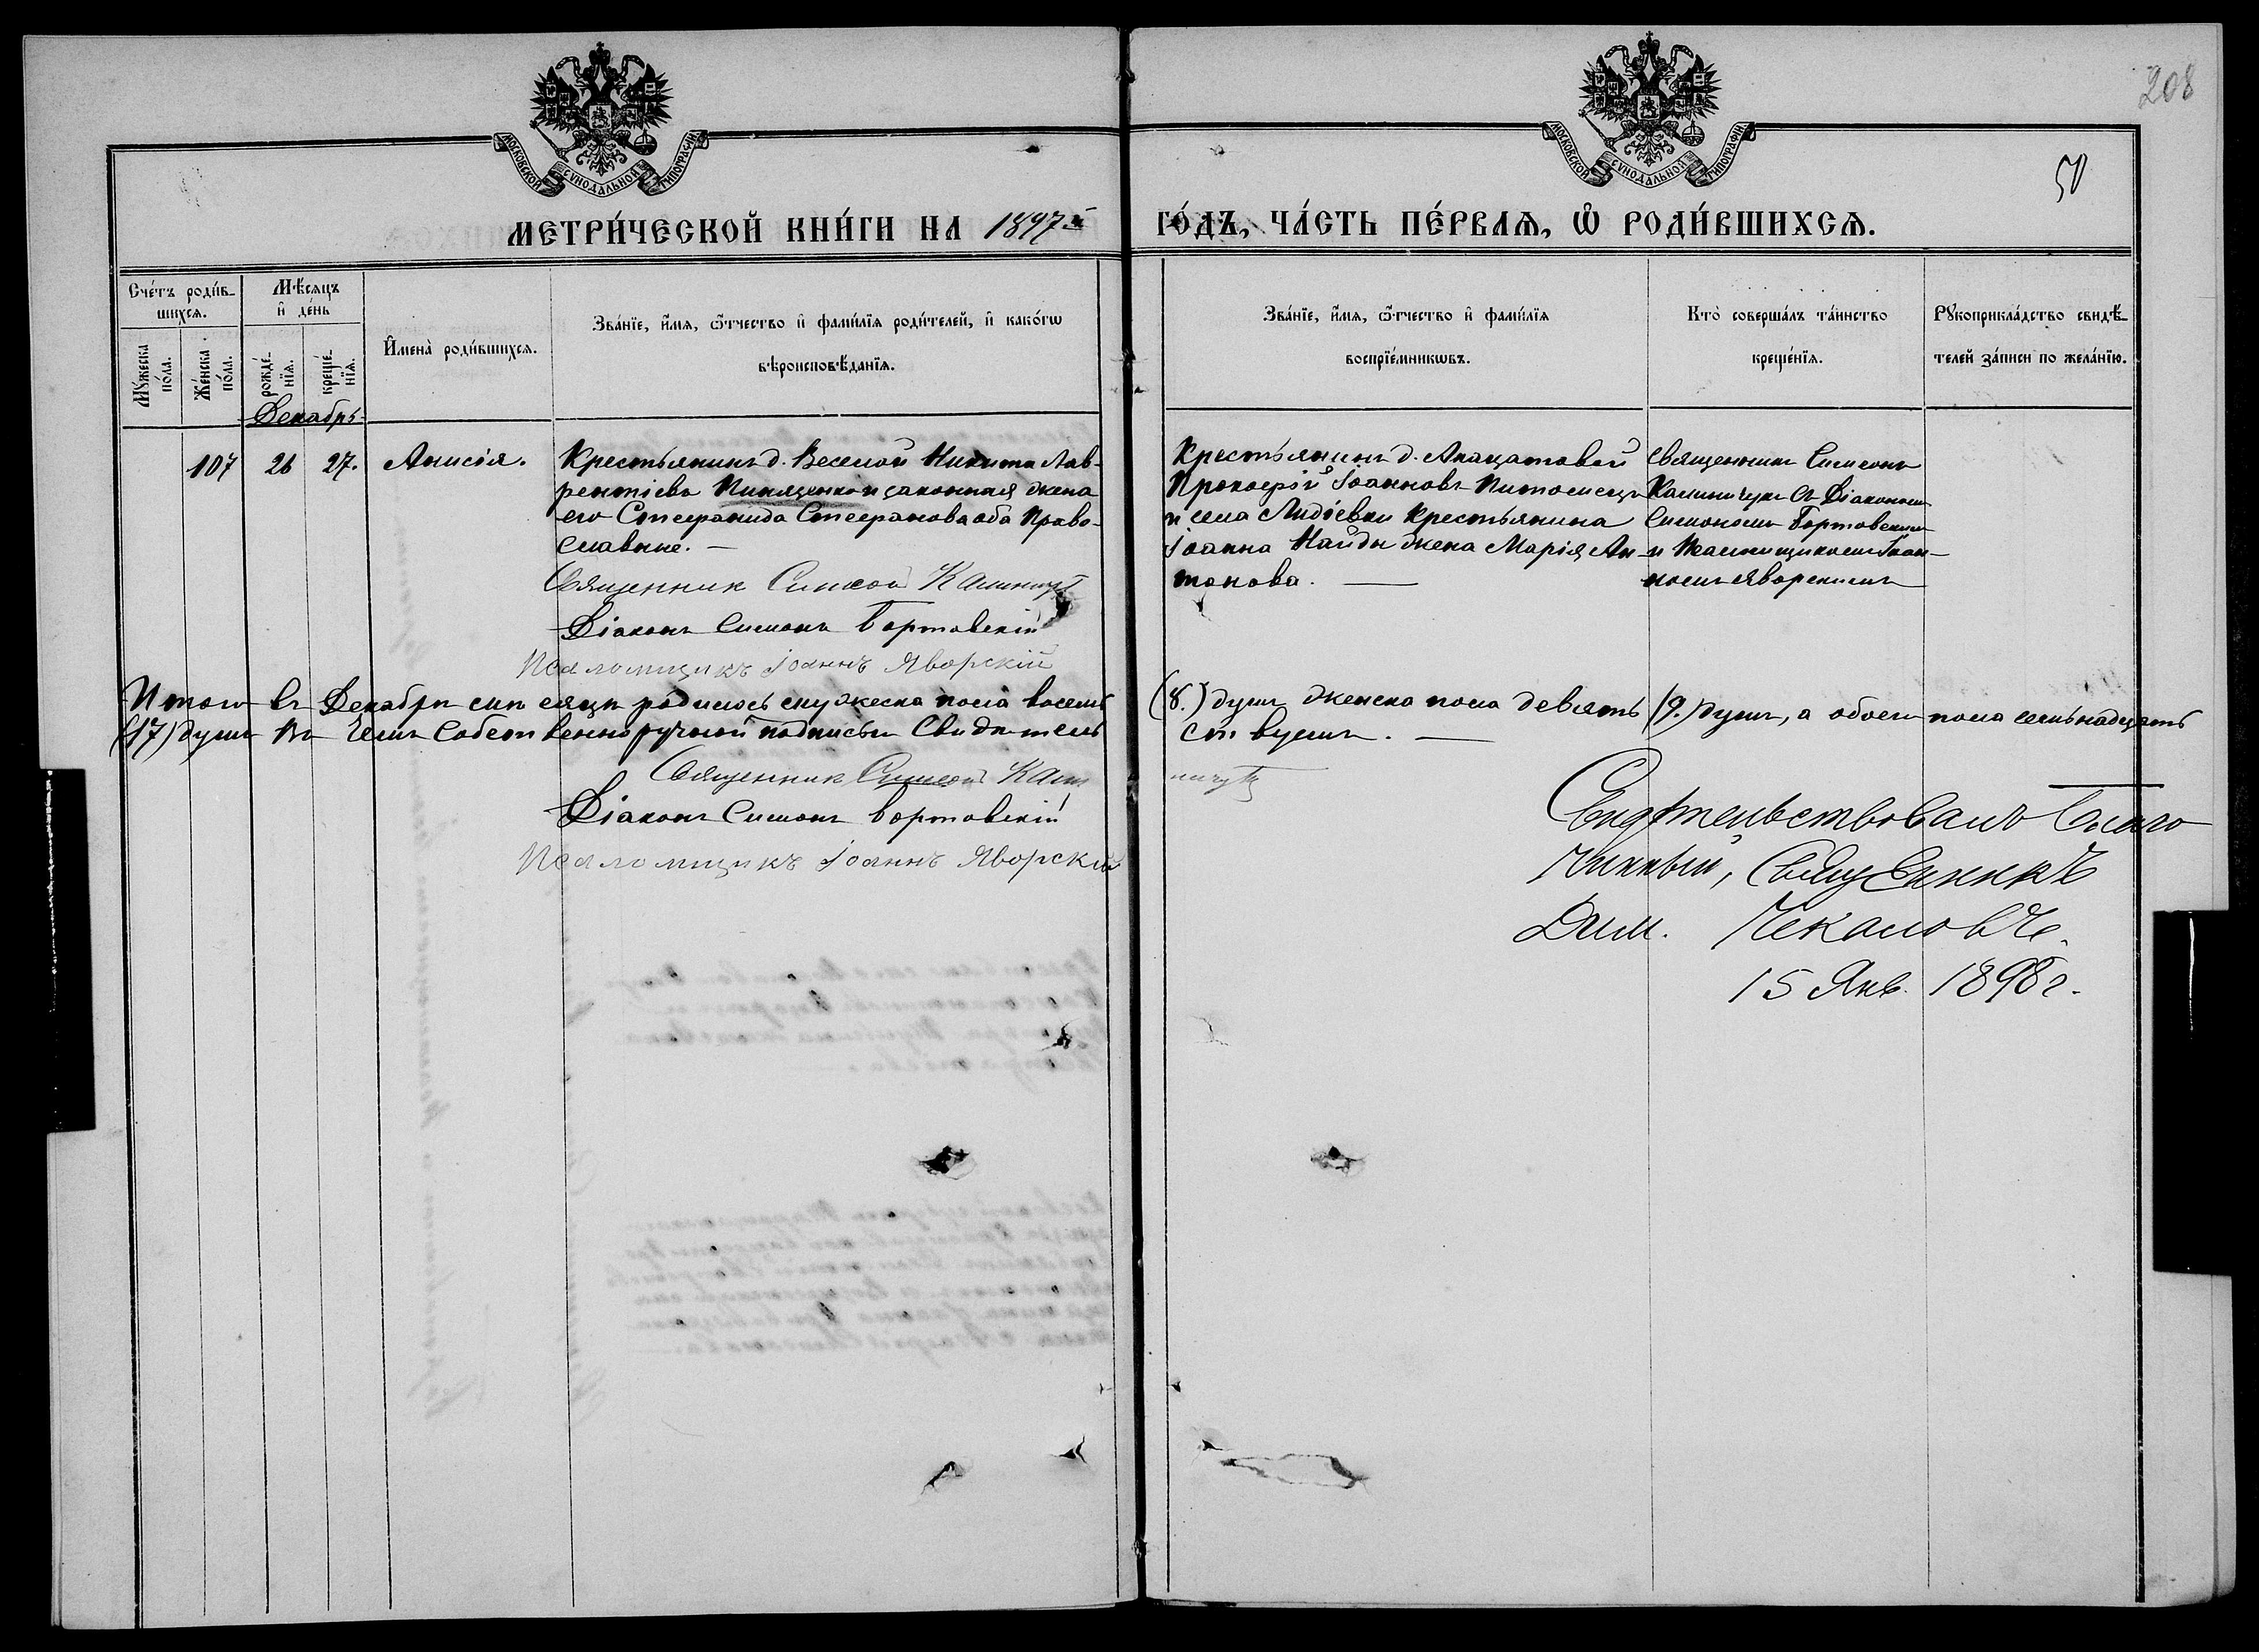 208
50
МОСКОВСКОЙ СѴНОДАЛЬНОЙ ТИПОГРАФІИ
МОСКОВСКОЙ СѴНОДАЛЬНОЙ ТИПОГРАФІИ
МЕТРИ́ЧЕСКОЙ КНИ́ГИ НА 1897й ГО́ДЪ, ЧА́СТЬ ПЕ́РВАѦ, Ѡ҆ РОДИ́ВШИХСѦ.
Счéтъ роди́в-
шихся.
Мꙋ́жеска по́ла.
Же́нска по́ла.
Мѣ́сяцъ
и҆ де́нь
рожде́-
нїя.
креще́-
нїя.
И҆мена̀ роди́вшихся.
Зва́нїе, и҆́мя, ѻ҆́тчество и҆ фами́лїя роди́телей, и҆ како́гѡ
вѣроисповѣ́данїя.
Зва́нїе, и҆́мя, ѻ҆́тчество и҆ фами́лїя
воспрїе́мникѡвъ.
Кто̀ соверша́лъ та́инство
креще́нїя.
Рꙋкоприкла́дство свидѣ́-
телей за́писи по жела́нїю.
Декабрь
107 26 27. Анисія.
Крестьянинъ д. Веселой Никита Лав-
рентіевъ и законная жена
его Стефанида Стефанова оба Право-
славные. —
Священник Симеон
Діаконъ Симонъ Бортовскій
Псаломщикъ Іоаннъ Яворскій
Крестьянинъ д.
Прокофій Іоанновъ
и села Лидіевки Крестьянина
Іоанна Найды жена Марія Ан-
тонова. —
Священникъ Симеонъ
Калиничукъ съ Діакономъ
Симономъ Бортовскимъ
и Псаломщикомъ Іоан-
номъ Яворскимъ
Итого въ Декабрѣ мѣсяцѣ родилось мужеска пола восемь (8.) душъ женска пола девять (9.) душъ, а обоего пола семьнадцять
(17) душъ Въ чемъ Собственноручной подписью Свидѣтельствуемъ. —
Священник Симеон Калиничук
Діаконъ Симонъ Бортовскій
Псаломщикъ Іоаннъ Яворскій
Свидѣтельствовалъ Благо-
чинный, Священникъ
Дим. Чекаловъ.
15 Янв. 1898 г.